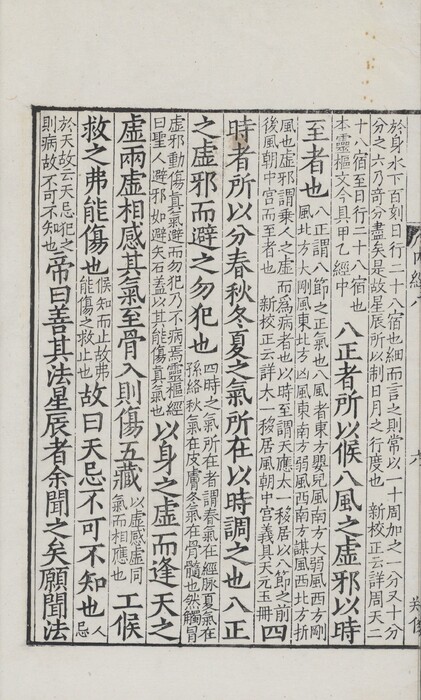 於身水下百刻日行二十八宿也細而言之則常以一十周加之一分又十分
分之六乃奇分盡矣是故星辰所以制日月之行度也 新校正云詳周天二
十八宿至日行二十八宿也
本靈樞文今具甲乙經中
八正者所以候八風之虛邪以時
至者也
八正謂八節之正氣也八風者東方嬰兒風南方大弱風西方剛
風北方大剛風東北方凶風東南方弱風西南方謀風西北方折
風也虛邪謂乘人之虛而爲病者也以時至謂天應太一移居以八節之前
後風朝中宮而至者也 新校正云詳太一移居風朝中宮義具天元玉冊
四
時者所以分春秋冬夏之氣所在以時調之也八正
之虛邪而避之勿犯也
四時之氣所在者謂春氣在經脈夏氣在
孫絡秋氣在皮膚冬氣在骨髓也然觸冒
虛邪動傷真氣避而勿犯乃不病焉靈樞經
曰聖人避邪如避矢石蓋以其能傷真氣也
以身之虛而逢天之
虛兩虛相感其氣至骨入則傷五藏
以虛感虛同
氣而相應也
工候
救之弗能傷也
候知而止故弗
能傷之救止也
故曰天忌不可不知也
人
忌
於天故云天忌犯之
則病故不可不知也
帝曰善其法星辰者余聞之矣願聞法